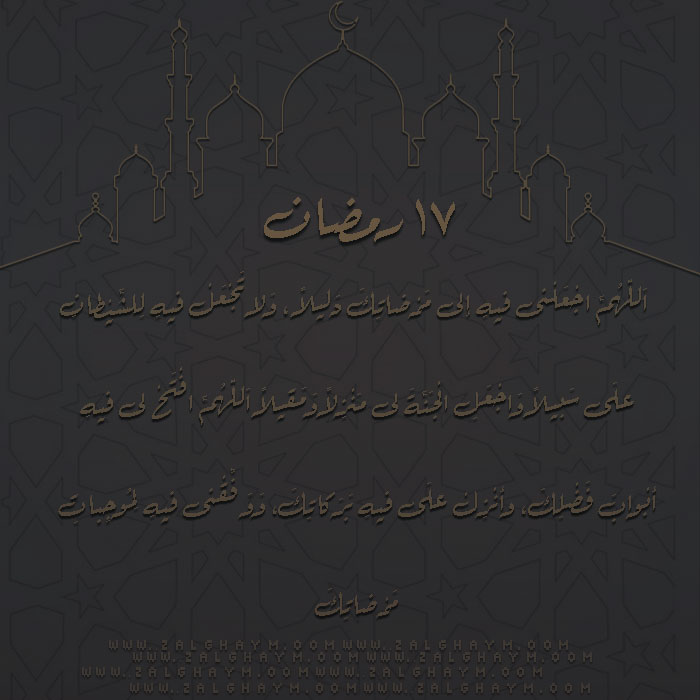 ١٧ رمضان
اَللّهُمَّ اجْعَلْنى فيهِ اِلى مَرْضاتِكَ دَليلاً، وَلا تَجْعَلْ فيهِ لِلشَّيْطانِ
عَلَى سَبيلاً وَاجْعَلِ الْجَنَّةَ لى مَنْزِلاً وَمَقيلاً اَللّهُمَّ افْتَحْ لى فيهِ
اَبْوابَ فَضْلِكَ، وَاَنْزِلْ عَلَى فيهِ بَرَكاتِكَ، وَوَفِّقْنى فيهِ لِمُوجِباتِ
مَرْضاتِكَ
WWW.ZALGHAYM.COM WWW.ZALGHAYM.COM
WWW.ZALGHAYM.COM WWW.ZALGHAYM.COM
WWW.ZALGHAYM.COM WWW.ZALGHAYM.COM
WWW.ZALGHAYM.COM WWW.ZALGHAYM.COM